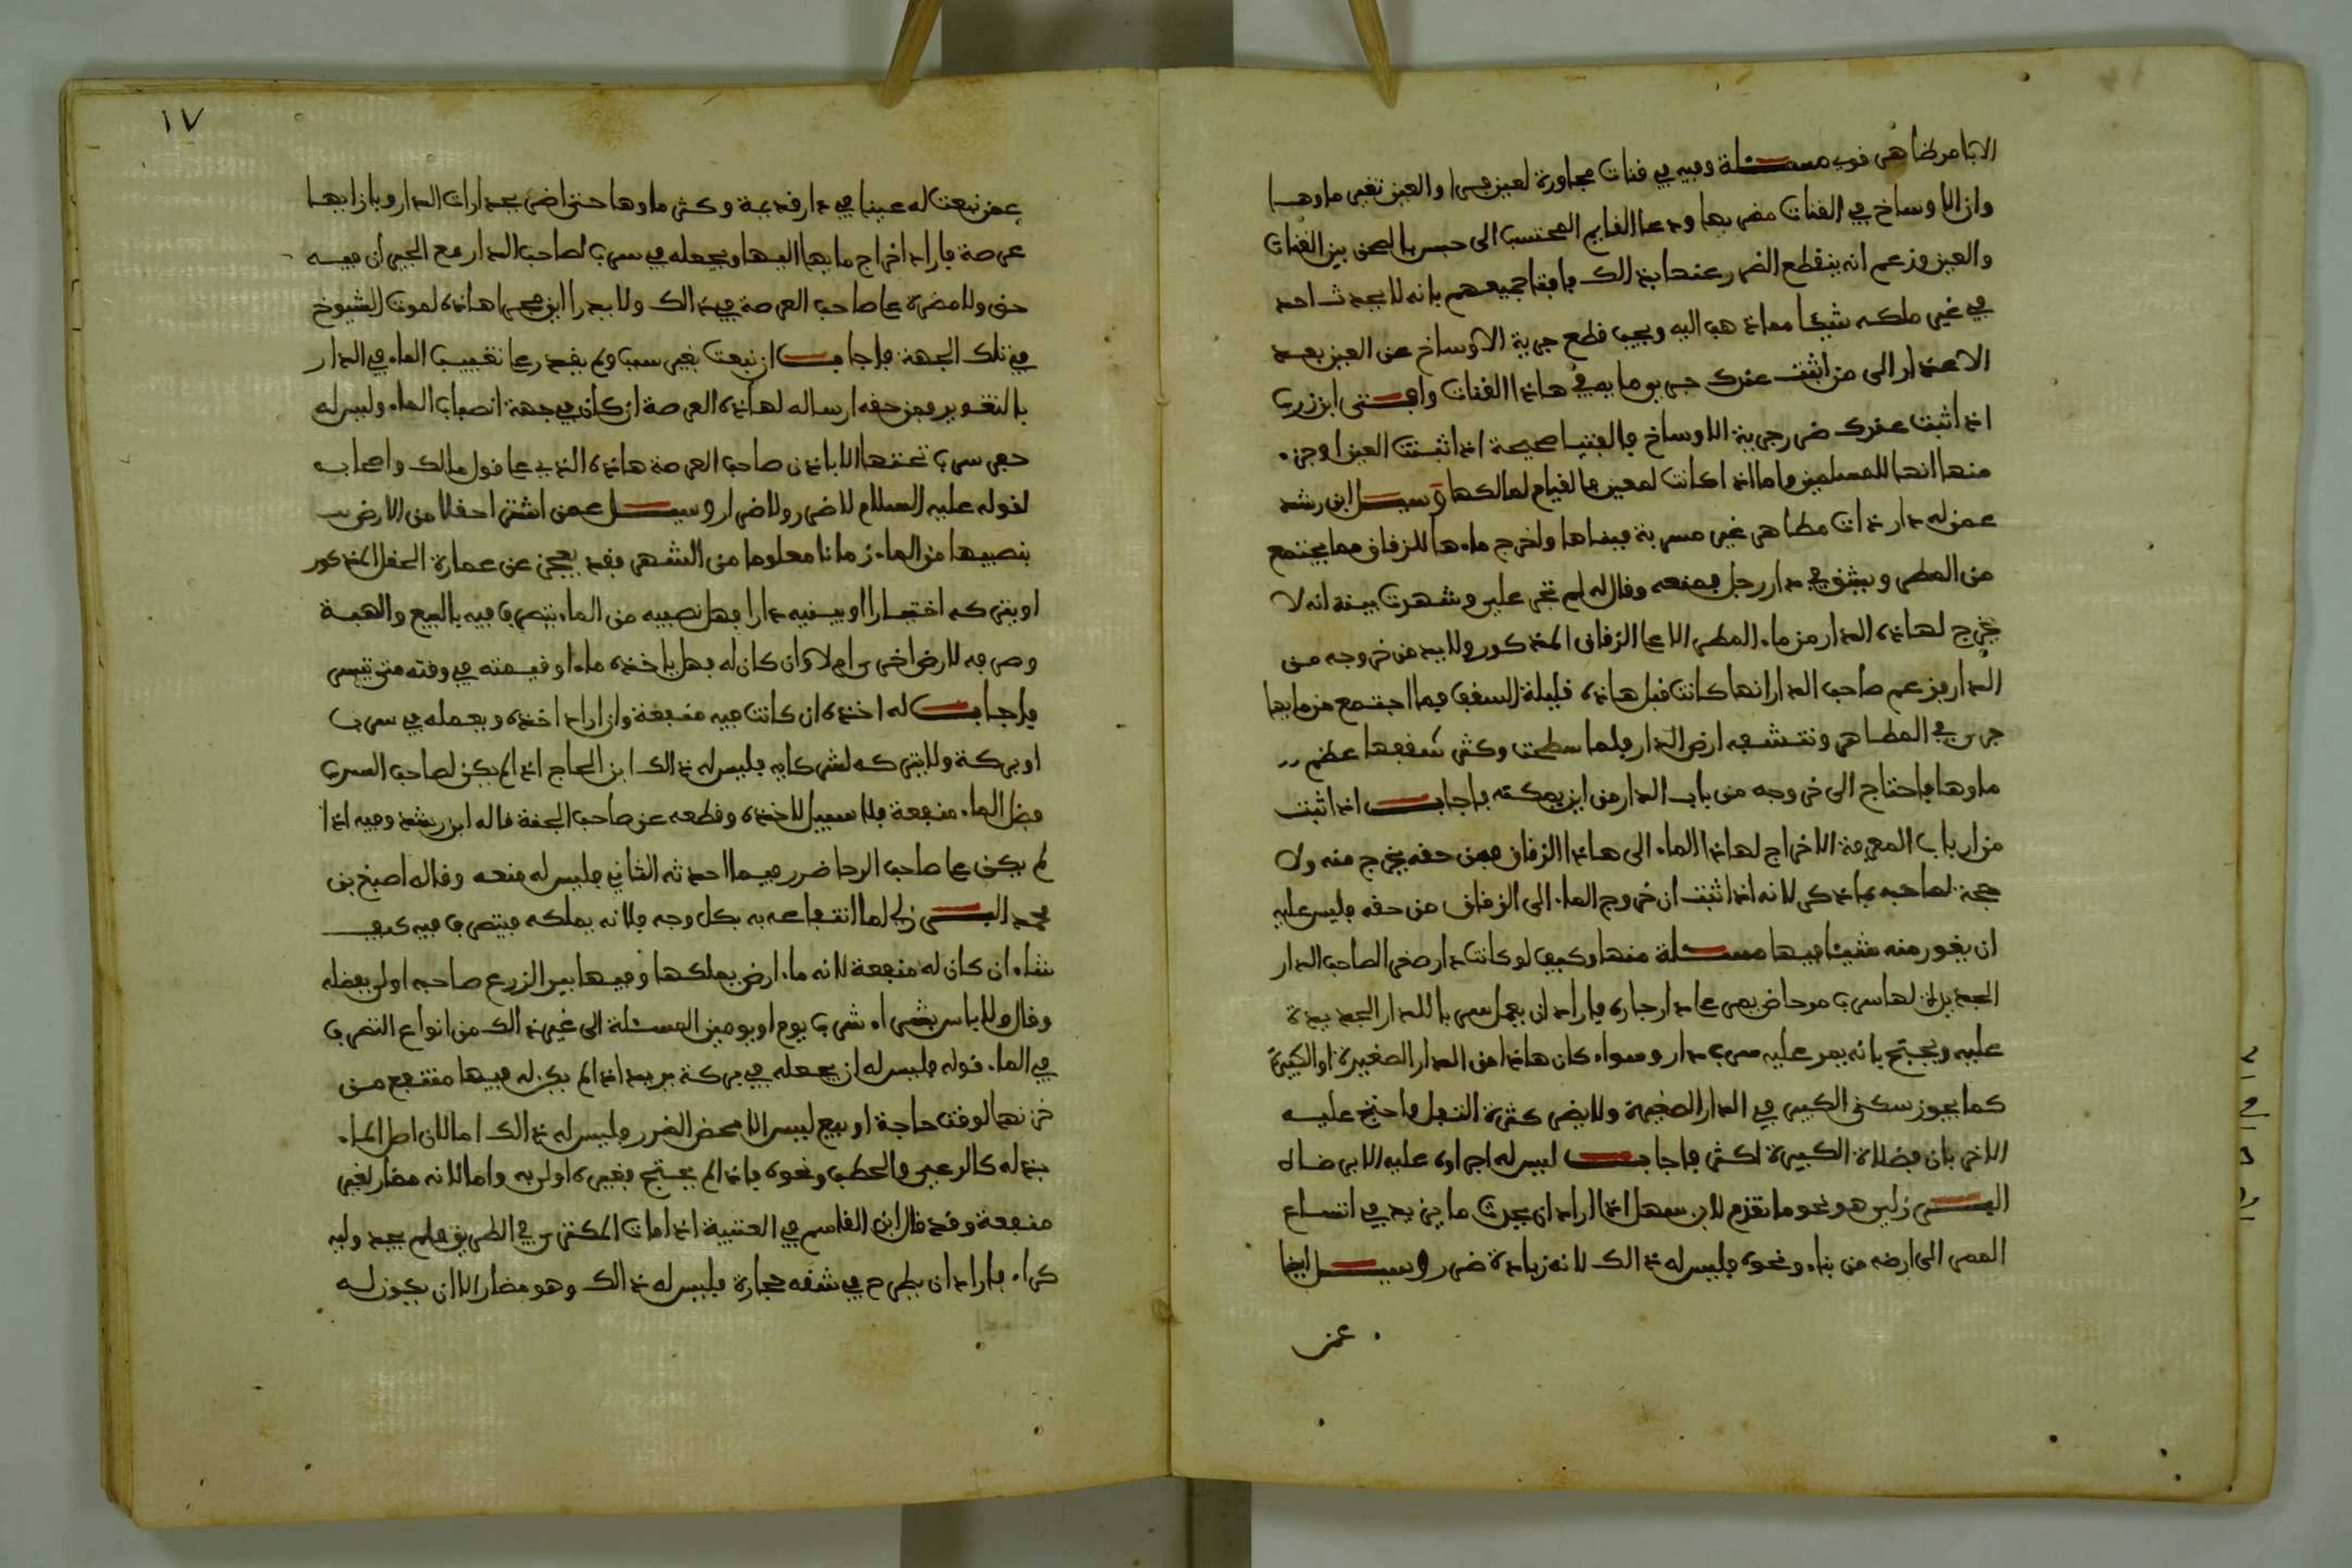 الا بامر ظاهر قوي مسئلة وفيه في قنات مجاورة لعين جرا والعين تغير ماوها
وان الاوساخ في القنات مضر بها ودعا القايم المحتسب الى حبس بالصحن بين القنات
والعين وزعم انه ينقطع الضرر عنها بذالك فافتا جميعهم بانه لا يحدث احد
في غير ملكه شيئا مما ذهب اليه ويجب قطع جرية الاوساخ عن العين بعد
الاعذار الى من اثبت عندك جريوما يصفي هاذا القنات وافتى ابن زرب
اذا ثبت عندك ضرر جرية الاوساخ فالفتيا صحيحة اذا ثبتت العين او جزء
منها انها للمسلمين واما اذا كانت لمعين فالقيام لمالكها وسيل ابن رشد
عمن له دار ذات مطاهر غير مسربة فبناها واخرج ماءها للزقاق مما يجتمع
من المطر ويشق في دار رجل فمنعه وقال له لم تجر علي وشهدت بينة انه لا
يخرج لهاذه الدار من ماء المطر الا على الزقاق المذكور ولا بد من خروجه من
الدار فزعم صاحب الدار انها كانت قبل هاذه قليلة السقف فما اجتمع من مايها
جرى في المطاهر وتنشفه ارض الدار فلما سطحت وكثر سقفها عظم
ماوها فاحتاج الى خروجه من باب الدار من اين يمكنه فاجاب اذا ثبت
من ارباب المعرفة الاخراج لهاذا الماء الى هاذا الزقاق فمن حقه يخرج منه ولا
حجة لصاحبه بما ذكر لانه اذا ثبت ان خروج الماء الى الزقاق من حقه فليس عليه
ان يغور منه شيئا فيها مسئلة منها وكيف لو كانت دار صغرى لصاحب الدار
الجديدة لها سرب مرحاض يصر على دار جاره فاراد ان يعمل سربا للدار الجديدة
عليه ويحتج بانه يمر عليه سرب دار وسواء كان هاذا من الدار الصغيرة او الكبيرة
كما يجوز سكنى الكبير في الدار الصغيرة ولا يضر كثرة الثفل فاحتج عليه
الاخر بان فضلاة الكبيرة اكثر فاجاب ليس له اجراوه عليه الا برضاه
البرزلي هو نحو ما تقدم لابن سهل اذا اراد ان يحدث ما يزيد في اتساع
الممر الى ارضه من بناء ونحوه فليس له ذالك لانه زيادة ضرر وسيل ايضا
عمن
١٧
عمن نبعت له عينا في دار قديمة وكثر ماوها حتى اضر بجدارات الدار وبازايها
عرصة فاراد اخراج مايها اليها ويجعله في سرب لصاحب الدار مع الجيران فيه
حق ولا مضرة على صاحب العرصة في ذالك ولا يدرا اين مجرا هاذه لموت الشيوخ
في تلك الجهة فاجاب ان نبعت بغير سبب ولم يقدر على تغييب الماء في الدار
بالتغوير فمن حقه ارساله لهاذه العرصة ان كان في جهة انصباب الماء وليس له
حفر سرب تحتها الا باذن صاحب العرصة هاذه الذي على قول مالك واصحابه
لقوله عليه السلام لا ضرر ولا ضرار وسيل عمن اشترا حقلا من الارض
بنصيبها من الماء زمانا معلوما من الشهر فقد يعجز عن عمارة الحقل المذكور
او يتركه اختيارا او يبنيه دارا فهل نصيبه من الماء يتصرف فيه بالبيع والهبة
وصرفه لارض اخرى ام لا وان كان له فهل ياخذه ماء او قيمته في وقته متى تيسر
فاجاب له اخذه ان كانت فيه منفعة وان اراد اخذه ويعمله في سرب
او بركة ولا يتركه لشركايه فليس له ذالك ابن الحاج اذا لم يكن لصاحب السرب
فضل الماء منفعة فلا سبيل لاخذه وقطعه عن صاحب الجنة قاله ابن رشد وفيه اذا
لم يكن على صاحب الرحا ضرر فيما احدثه الثاني فليس له منعه وقاله اصبغ بن
محمد البرزلي اما انتفاعه به بكل وجه فلانه يملكه فيتصرف فيه كيف
شاء ان كان له منفعة لانه ماء ارض يملكها وفيها بير الزرع صاحبه اولى بفضله
وقال ولا باس بشراء شرب يوم او يومين المسئلة الى غير ذالك من انواع التصرف
في الماء قوله فليس له ان يجعله في بركة يريد اذا لم يكن له فيها منتفع من
خزنها لوقت حاجة او بيع ليس الا محض الضرر فليس له ذالك اما لان اصل الماء
بذله كالرعي والحطب ونحوه فاذا لم يحتج فغيره اولى به واما لانه مضار لغير
منفعة وقد قال ابن القاسم في العتبية اذا مات المكترى في الطريق فلم يجد وليه
كراء فاراد ان يطرح في شقه حجارة فليس له ذالك وهو مضار الا ان يجوز له